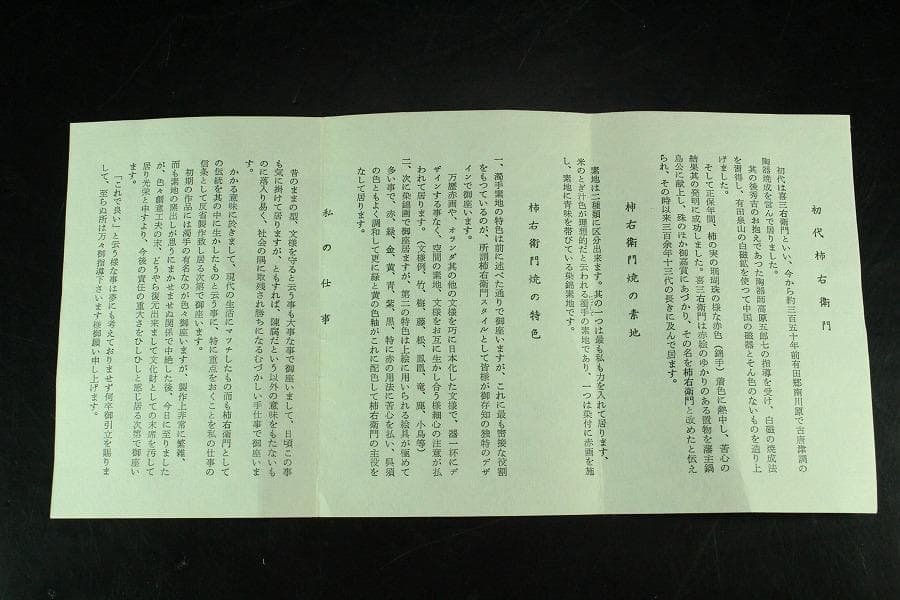 初代柿右衛門
初代は喜三右衛門といい、今から約三百五十年前有田郷南川原で古唐津調の
陶器焼成を営んで居りました。
其の後秀吉のお抱えであつた陶器師高原五郎七の指導を受け、白磁の焼成法
を習得し、有田泉山の白磁鉱を使つて中国の磁器とそん色のないものを造り上
げました。
そして正保年間、柿の実の珊瑚珠の様な赤色(錦手)着色に熱中し、苦心の
結果其の発明に成功しました。喜三右衛門は赤絵のゆかりのある置物を藩主鍋
島公に献上し、殊のほか御嘉賞にあづかり、その名を柿右衛門と改めたと伝え
られ、その時以来三百余年十三代の長きに及んで居ます。
柿右衛門焼の素地
素地は二種類に区分出来ます。其の一つは最も私も力を入れて居ります、
米のとぎ汁色が理想的だと云われる濁手の素地であり、一つは染付に赤画を施
し、素地に青味を帯びている染錦素地です。
柿右衛門焼の特色
一、濁手素地の特色は前に述べた通りで御座いますが、これに最も密接な役割
をもつているのが、所謂柿右衛門スタイルとして皆様が御存知の独特のデザ
インで御座います。
万暦赤画や、オランダ其の他の文様を巧に日本化した文様で、器一杯にデ
ザインする事なく、空間の素地、文様をお互に生かし合う様細心の注意が払
われて居ります。(文様例、竹、梅、藤、松、鳳凰、竜、鹿、小鳥等)
二、次に染錦画で御座居ますが、第二の特色は上絵に用いられる絵具が極めて
多い事で、赤、緑、金、黄、青、紫、黒、特に赤の用法に苦心を払い、呉須
の色ともよく調和して更に緑と黄の色釉がこれに配色して柿右衛門の主役を
なして居ります。
私の仕事
昔のままの型、文様を守ると云う事も大事な事で御座いまして、日頃この事
も気に掛けて居りますが、ともすれば、陳腐だという以外の意味をもたないも
のに落入り易く、社会の隅に取残され勝ちになるむづかしい手仕事で御座いま
す。
かかる意味に於きまして、現代の生活にマッチしたもの而も柿右衛門として
の伝統を其の中に生かしたものと云う事に、特に重点をおくことを私の仕事の
信条として反省製作致し居る次第で御座います。
初期の作品には濁手の有名なのが色々御座いますが、製作上非常に繁雑、
而も素地の窯出しが思うにまかせませぬ関係で中絶した後、今日に至りました
が、色々創意工夫の末、どうやら復元出来まして文化財としての末席を汚して
居り光栄と申すより、今後の責任の重大さをひしひしと感じ居る次第で御座い
ます。
「これで良い」と云う様な事は夢にも考えておりませず何卒御引立を賜りま
して、至らぬ所は万々御指導下さいます様御願い申し上げます。